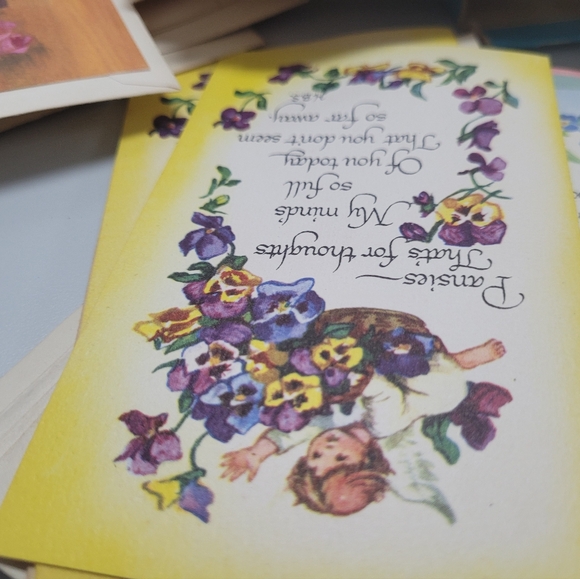 Pansies—
That's for thoughts
My mind's
so full
Of you today
That you don't seem
so far away.